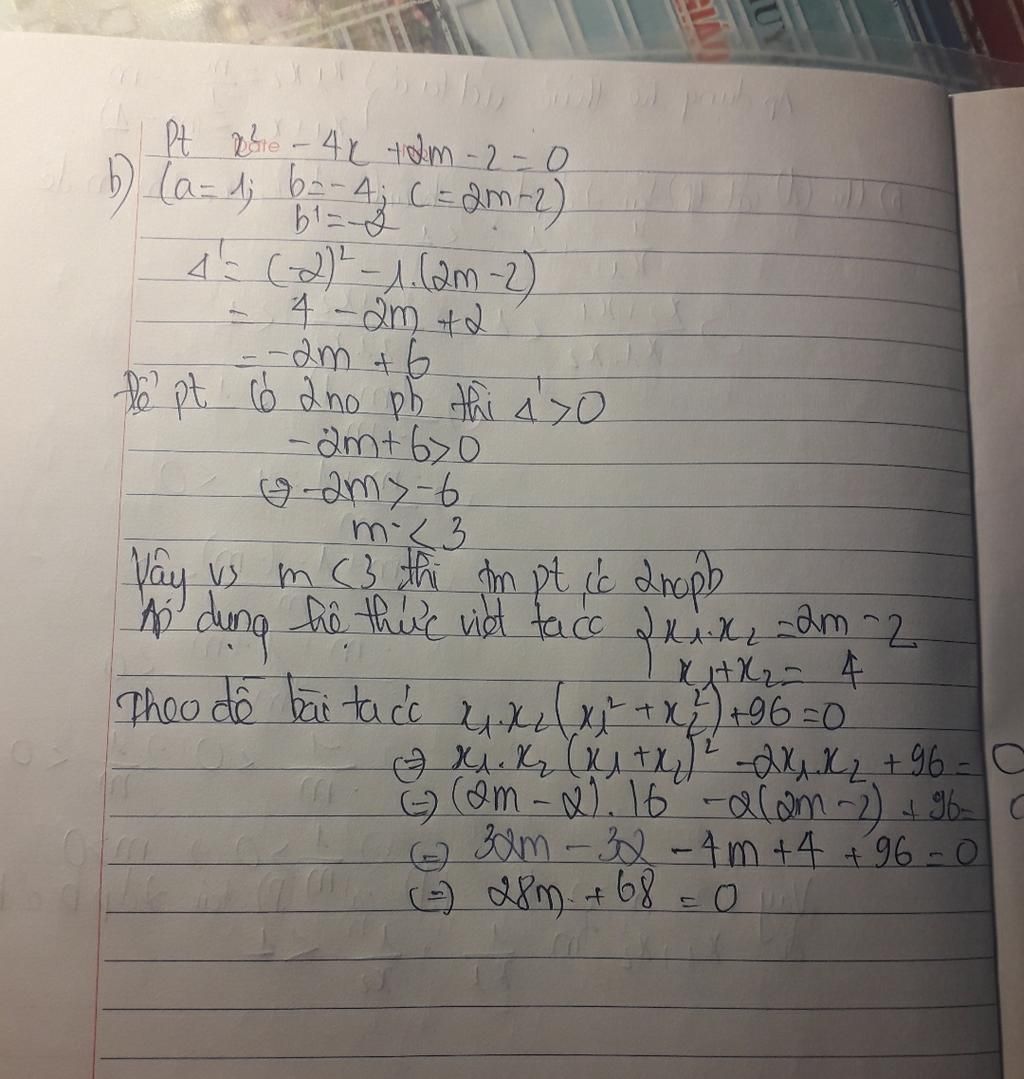 GIÁO
HUY
Pt x² - 4x + 2m - 2 = 0
b) (a = 1; b = -4; c = 2m - 2)
b' = -2
Δ' = (-2)² - 1.(2m - 2)
= 4 - 2m + 2
= -2m + 6
Để pt có 2 no pb thì Δ' > 0
-2m + 6 > 0
⇔ -2m > -6
m < 3
Vậy vs m < 3 thì pt có 2 no pb
Áp dụng hệ thức viét ta có { x₁.x₂ = 2m - 2
x₁ + x₂ = 4
Theo đề bài ta có x₁.x₂(x₁² + x₂²) + 96 = 0
⇔ x₁.x₂(x₁ + x₂)² - 2x₁.x₂ + 96 = 0
⇔ (2m - 2).16 - 2(2m - 2) + 96 = 0
⇔ 32m - 32 - 4m + 4 + 96 = 0
⇔ 28m + 68 = 0